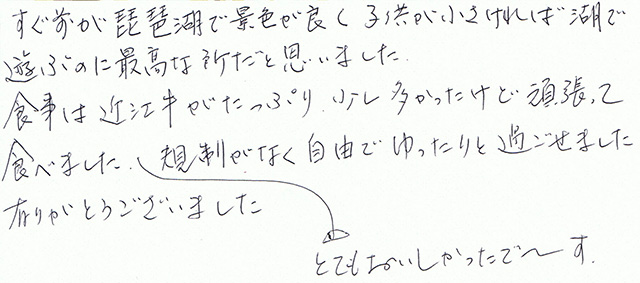 すぐ前が琵琶湖で景色が良く子供が小さければ湖で
遊ぶのに最高な所だと思いました.
食事は近江牛がたっぷり.少し多かったけど頑張って
食べました.規制がなく自由でゆったりと過ごせました
有りがとうございました
とてもおいしかったで〜す.